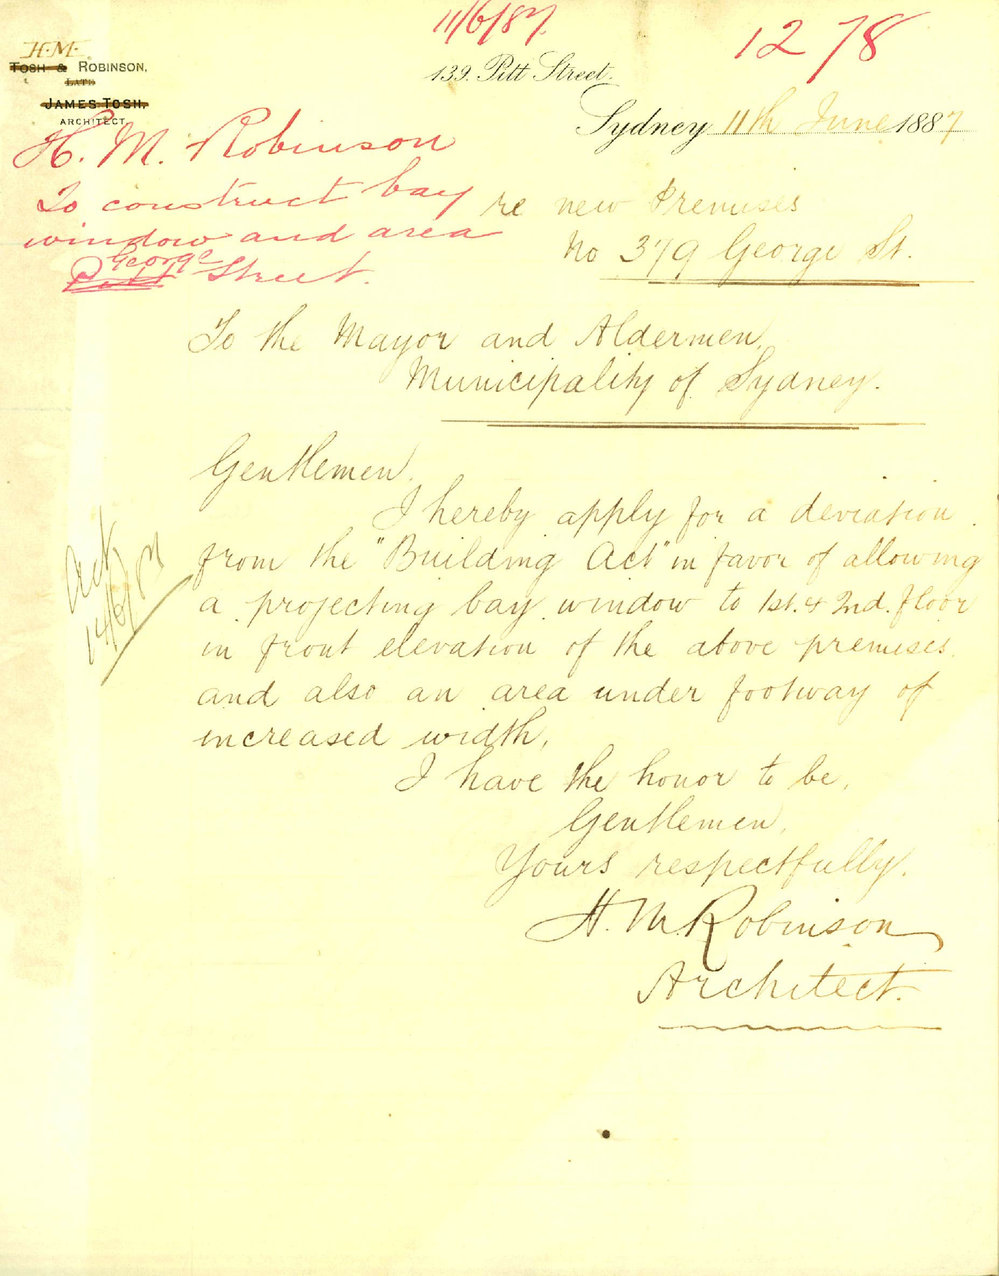 11/6/87
1278
H. M.
TOSH & ROBINSON,
LATE
JAMES TOSH,
ARCHITECT.
139. Pitt Street.
Sydney 11th June 1887
H. M. Robinson
To construct bay
window and area
George
Pitt Street.
re new Premises
No 379 George St.
To the Mayor and Aldermen,
Municipality of Sydney.
Gentlemen.
I hereby apply for a deviation
from the "Building Act" in favor of allowing
a projecting bay window to 1st. & 2nd. floor
in front elevation of the above premises.
and also an area under footway of
increased width.
14/6/87
I have the honor to be,
Gentlemen,
Yours respectfully.
H. M. Robinson
Architect.